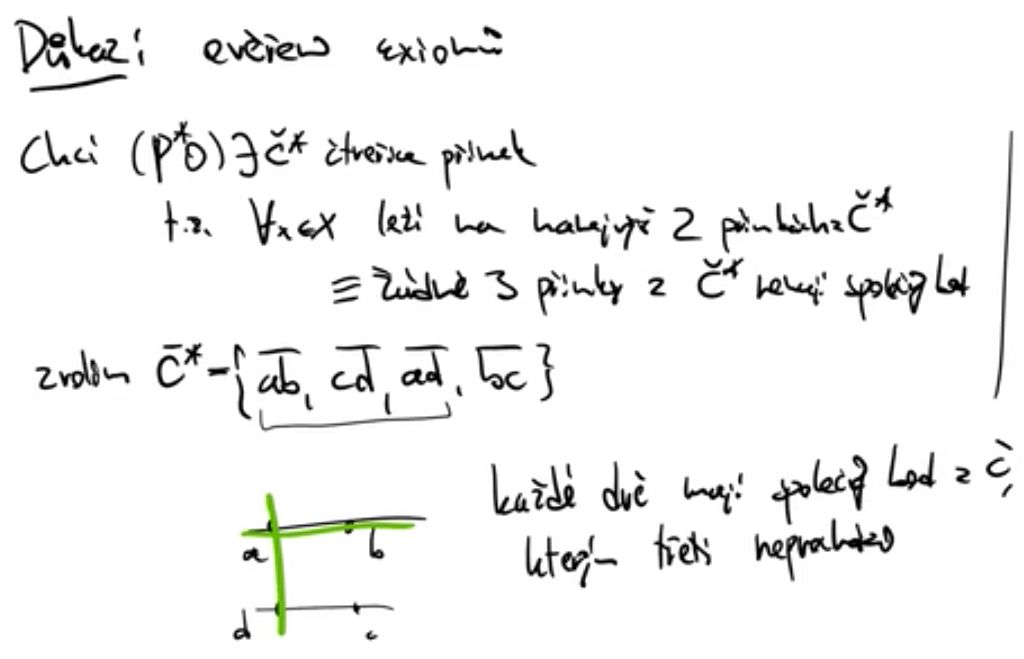 Důkaz: ověření axiomů
Chci (P*0) ∃ Č* čtveřice přímek
t.z. ∀x∈X leží na nanejvýš 2 přímkách z Č*
≡ žádné 3 přímky z Č* nemají společný bod
zvolím Č* = {ab, cd, ad, bc}
každé dvě mají společný bod z Č,
kterým třetí neprochází
a b
d c